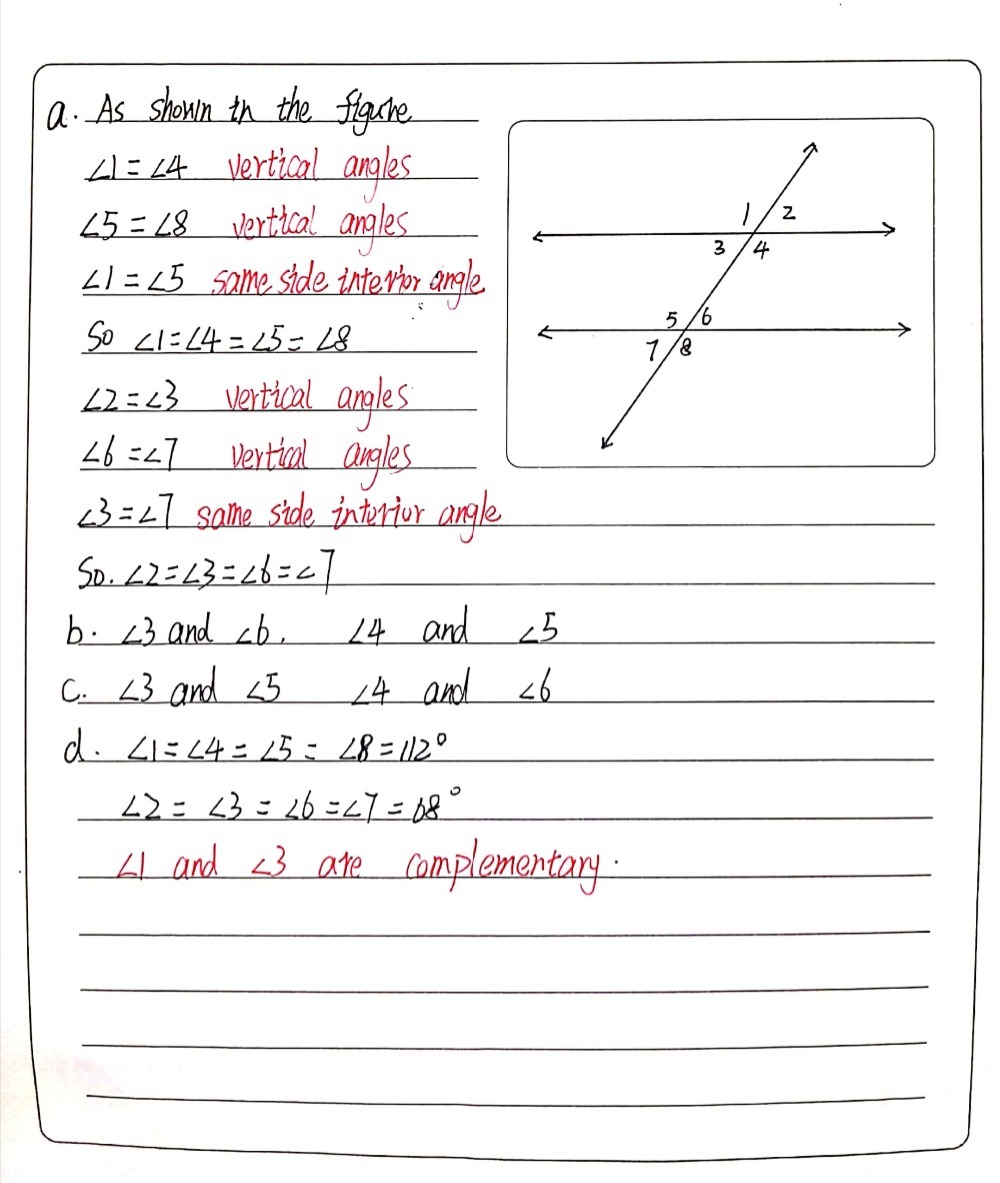 a. As shown in the figure
∠1=∠4 vertical angles
∠5=∠8 vertical angles
∠1=∠5 same side interior angle
So ∠1=∠4=∠5=∠8
∠2=∠3 vertical angles
∠6=∠7 vertical angles
∠3=∠7 same side interior angle
So. ∠2=∠3=∠6=∠7
b. ∠3 and ∠6, ∠4 and ∠5
c. ∠3 and ∠5 ∠4 and ∠6
d. ∠1=∠4=∠5=∠8=112°
∠2=∠3=∠6=∠7=68°
∠1 and ∠3 are complementary.
1 2
3 4
5 6
7 8